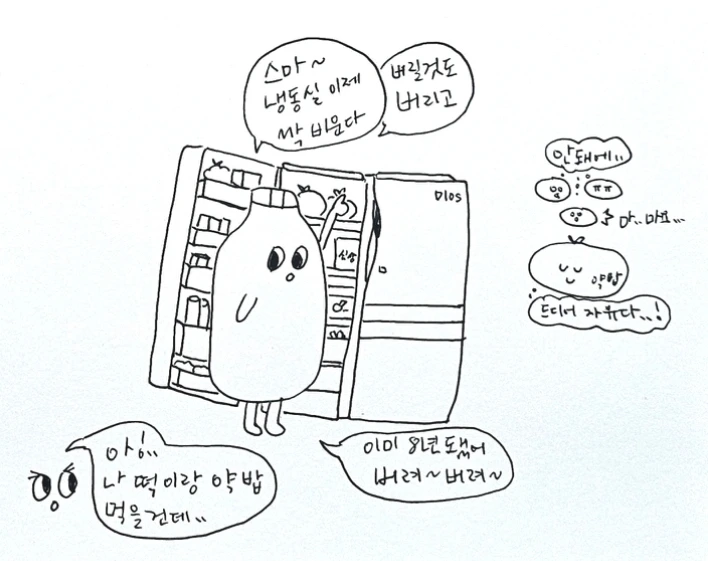 스마~
냉동실 이제
싹 비운다
버릴것도
버리고
안돼에..
ㅠㅠ
아..마요...
약밥
드디어 자유다..!
Dios
신상
아잉..
나 떡이랑 약밥
먹을건데..
이미 8년 됐어
버려~버려~